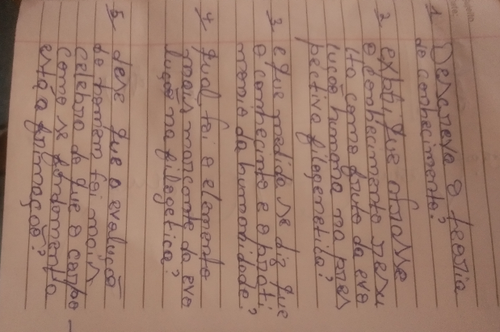 1 Descreva a teoria
do conhecimento?
2 explique a frase
o conhecimento resu
lta como fruto da evo
lução humana na pres
pectiva filogenetica?
3 e que medida se diz que
o conhecimento e o patri
monio da humanidade?
4 qual foi o elemento
mais marcante da evo
lução na filogetica?
5 diese que a evolução
do homem foi mais
celebra do que o corpo
como se fundamenta
esta a firmação?